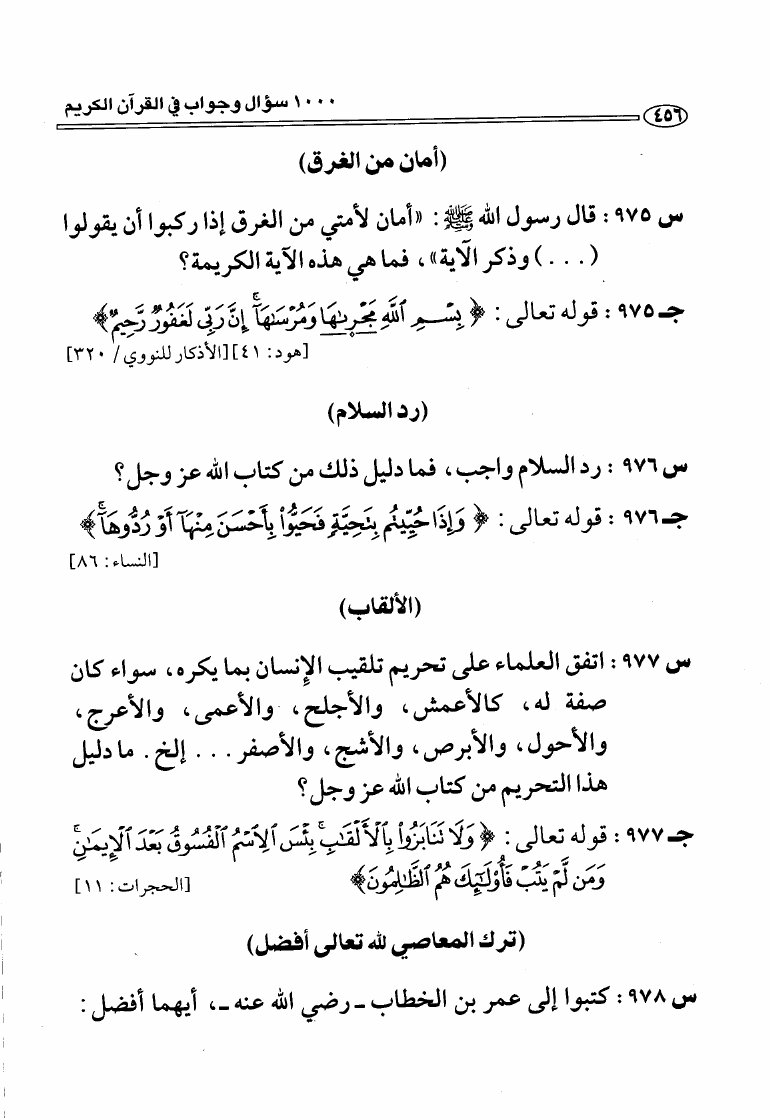 ١٠٠٠ سؤال وجواب في القرآن الكريم
٤٥٦
(أمان من الغرق)
س ٩٧٥ : قال رسول الله ﷺ : «أمان لأمتي من الغرق إذا ركبوا أن يقولوا
(. . .) وذكر الآية» ، فما هي هذه الآية الكريمة؟
جـ ٩٧٥ : قوله تعالى : ﴿ بِسْمِ ٱللَّهِ مَجْر۪ىٰهَا وَمُرْسَىٰهَآ ۚ إِنَّ رَبِّي لَغَفُورٌ رَّحِيمٌ﴾
[هود: ٤١] [الأذكار للنووي/ ٣٢٠]
(رد السلام)
س ٩٧٦ : رد السلام واجب، فما دليل ذلك من كتاب الله عز وجل؟
جـ ٩٧٦ : قوله تعالى : ﴿ وَإِذَا حُيِّيتُم بِتَحِيَّةٍ فَحَيُّوا۟ بِأَحْسَنَ مِنْهَآ أَوْ رُدُّوهَآ ۚ﴾
[النساء: ٨٦]
(الألقاب)
س ٩٧٧ : اتفق العلماء على تحريم تلقيب الإنسان بما يكره، سواء كان
صفة له، كالأعمش، والأجلح، والأعمى، والأعرج،
والأحول، والأبرص، والأشج، والأصفر . . . إلخ. ما دليل
هذا التحريم من كتاب الله عز وجل؟
جـ ٩٧٧ : قوله تعالى : ﴿ وَلَا تَنَابَزُوا۟ بِٱلْأَلْقَٰبِ ۖ بِئْسَ ٱلِٱسْمُ ٱلْفُسُوقُ بَعْدَ ٱلْإِيمَٰنِ ۚ
وَمَن لَّمْ يَتُبْ فَأُو۟لَٰٓئِكَ هُمُ ٱلظَّٰلِمُونَ﴾ [الحجرات: ١١]
(ترك المعاصي لله تعالى أفضل)
س ٩٧٨ : كتبوا إلى عمر بن الخطاب ـ رضي الله عنه ـ، أيهما أفضل :